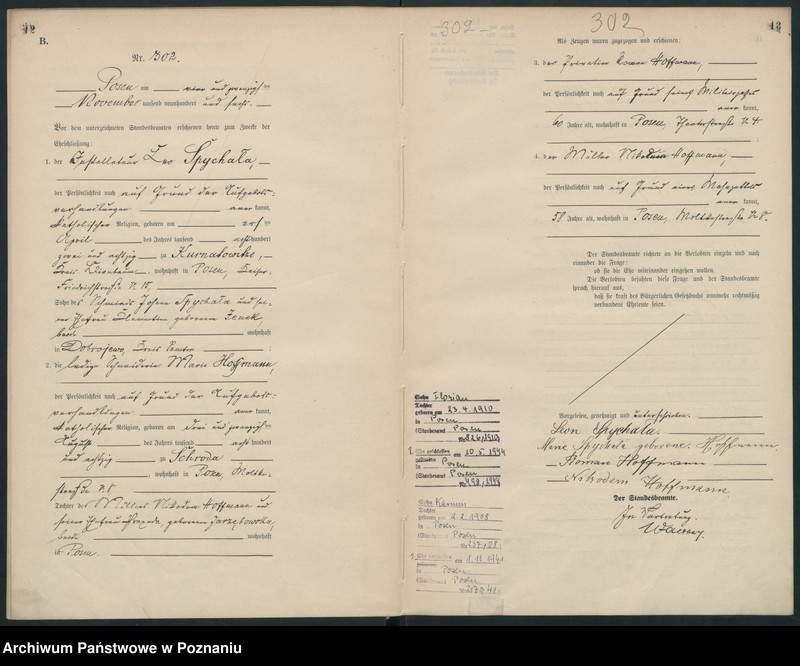 12
B.
Nr. 302.
Posen am vier und zwanzigsten
November tausend neunhundert und sechs.
Vor dem unterzeichneten Standesbeamten erschienen heute zum Zwecke der
Eheschließung:
1. der Installateur Leo Spychała,
der Persönlichkeit nach auf Grund der Aufgebots=
verhandlungen anerkannt,
katholischer Religion, geboren am
April des Jahres tausend achthundert
zwei und achtzig zu Kurnatowitz,
Kreis Birnbaum, wohnhaft in Posen, Kaiser
Friedrichstraße N. 15,
Sohn des Schmieds Spychała und sei-
ner Ehefrau geborenen
beide wohnhaft
in Dobrojewo, Kreis Samter
2. die ledige Schneiderin Marie Hoffmann,
der Persönlichkeit nach auf Grund der Aufgebots=
verhandlungen anerkannt,
katholischer Religion, geboren am drei und zwanzigsten
August des Jahres tausend achthundert
und achtzig zu Schroda
, wohnhaft in Posen, Moltke-
straße N. 8
Tochter des Müllers Nikodem Hoffmann und
seiner Ehefrau geborenen
beide wohnhaft
in Posen.
302
302
13
Als Zeugen waren zugezogen und erschienen:
3. der Privatier Roman Hoffmann,
der Persönlichkeit nach auf Grund seines Militärpasses
anerkannt,
60 Jahre alt, wohnhaft in Posen, N. 4
4. der Müller Nikodem Hoffmann,
der Persönlichkeit nach auf Grund eines
anerkannt,
58 Jahre alt, wohnhaft in Posen, Moltkestraße N. 8.
Der Standesbeamte richtete an die Verlobten einzeln und nach
einander die Frage:
ob sie die Ehe miteinander eingehen wollen.
Die Verlobten bejahten diese Frage und der Standesbeamte
sprach hierauf aus,
daß sie kraft des Bürgerlichen Gesetzbuchs nunmehr rechtmäßig
verbundene Eheleute seien.
Vorgelesen, genehmigt und unterschrieben.
Leon Spychała.
Marie Spychała geborene Hoffmann
Roman Hoffmann
Nikodem Hoffmann
Der Standesbeamte.
In Vertretung.
Sohn Florian
Tochter
geboren am 23. 4. 1910
in Posen
(Standesamt Posen
1910
1. Ehe geschlossen am 10. 5. 1944
in Posen
(Standesamt Posen
Nr. 498/1944
Sohn
Tochter
geboren am 2. 2. 1908
in Posen
(Standesamt Posen
Nr. 237/08
1. Ehe geschlossen am 1. 11. 1941
in Posen
(Standesamt Posen
Archiwum Państwowe w Poznaniu